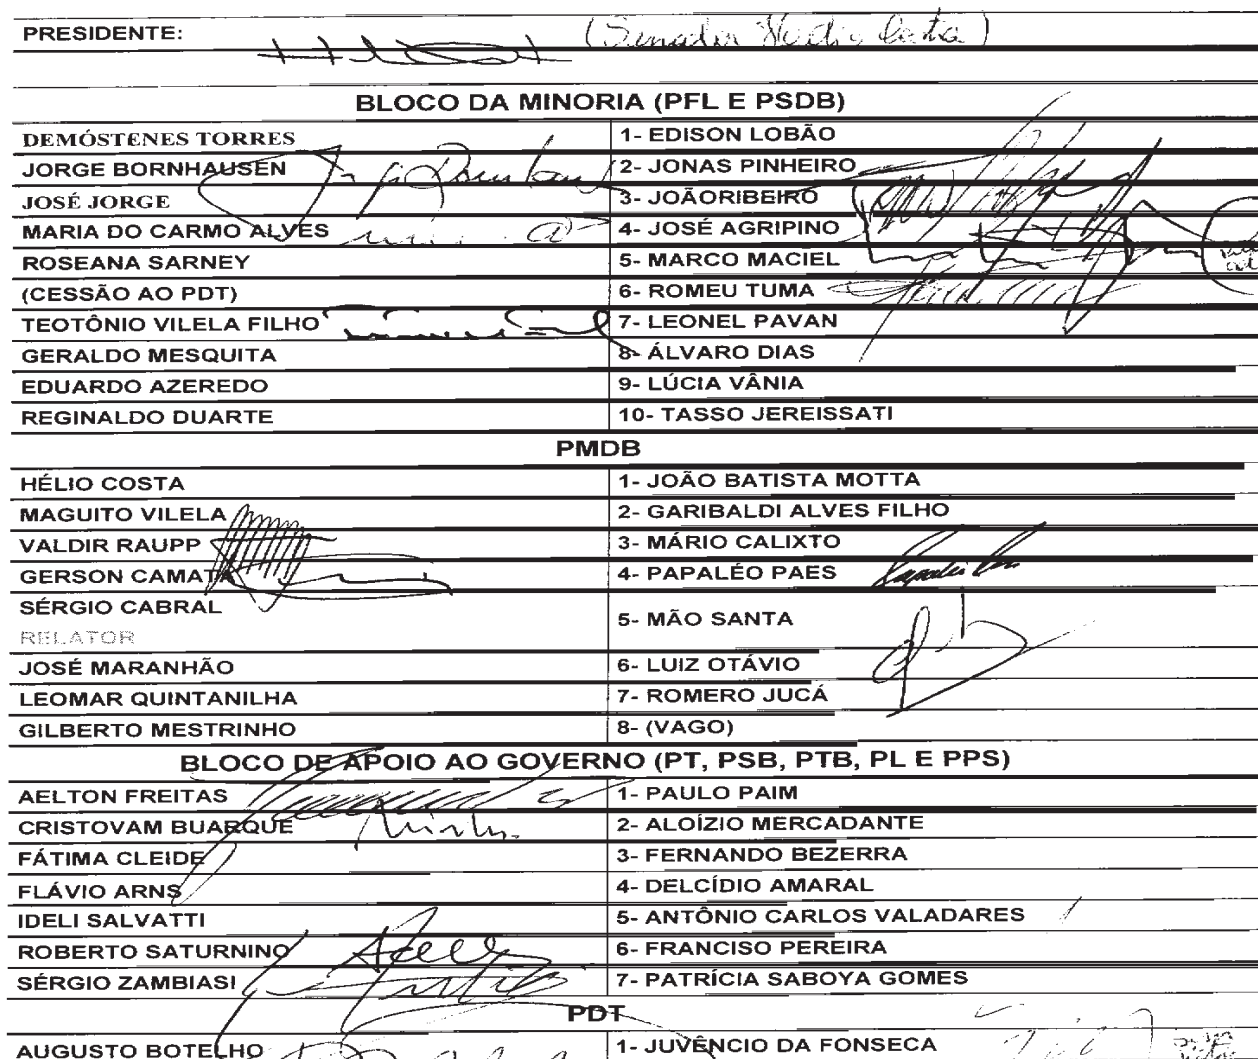 PRESIDENTE: (Senador Hélio Costa)
BLOCO DA MINORIA (PFL E PSDB)
DEMÓSTENES TORRES 1- EDISON LOBÃO
JORGE BORNHAUSEN 2- JONAS PINHEIRO
JOSÉ JORGE 3- JOÃORIBEIRO
MARIA DO CARMO ALVES 4- JOSÉ AGRIPINO
ROSEANA SARNEY 5- MARCO MACIEL
(CESSÃO AO PDT) 6- ROMEU TUMA
TEOTÔNIO VILELA FILHO 7- LEONEL PAVAN
GERALDO MESQUITA 8- ÁLVARO DIAS
EDUARDO AZEREDO 9- LÚCIA VÂNIA
REGINALDO DUARTE 10- TASSO JEREISSATI
PMDB
HÉLIO COSTA 1- JOÃO BATISTA MOTTA
MAGUITO VILELA 2- GARIBALDI ALVES FILHO
VALDIR RAUPP 3- MÁRIO CALIXTO
GERSON CAMATA 4- PAPALÉO PAES
SÉRGIO CABRAL 5- MÃO SANTA
RELATOR
JOSÉ MARANHÃO 6- LUIZ OTÁVIO
LEOMAR QUINTANILHA 7- ROMERO JUCÁ
GILBERTO MESTRINHO 8- (VAGO)
BLOCO DE APOIO AO GOVERNO (PT, PSB, PTB, PL E PPS)
AELTON FREITAS 1- PAULO PAIM
CRISTOVAM BUARQUE 2- ALOÍZIO MERCADANTE
FÁTIMA CLEIDE 3- FERNANDO BEZERRA
FLÁVIO ARNS 4- DELCÍDIO AMARAL
IDELI SALVATTI 5- ANTÔNIO CARLOS VALADARES
ROBERTO SATURNINO 6- FRANCISO PEREIRA
SÉRGIO ZAMBIASI 7- PATRÍCIA SABOYA GOMES
PDT
AUGUSTO BOTELHO 1- JUVÊNCIO DA FONSECA